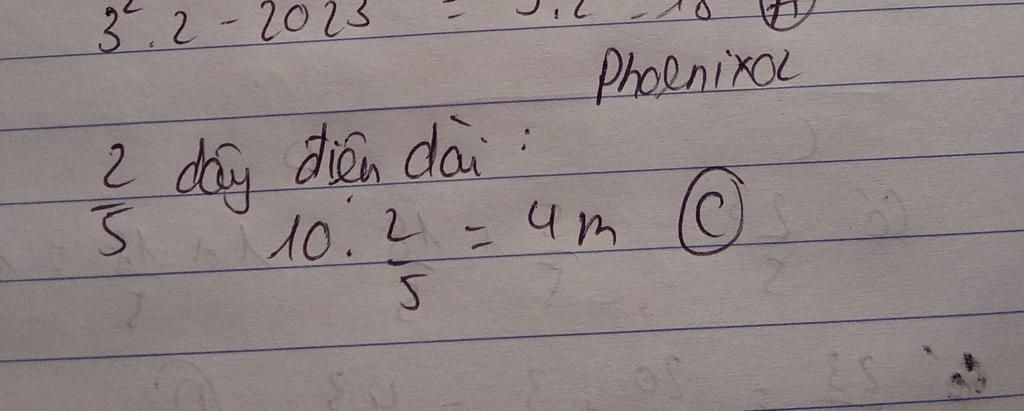 3² . 2 - 2023 = 9.2 - 18 Ⓐ
Phoenixoc
2/5 dây điện dài :
10 . 2/5 = 4 m Ⓒ